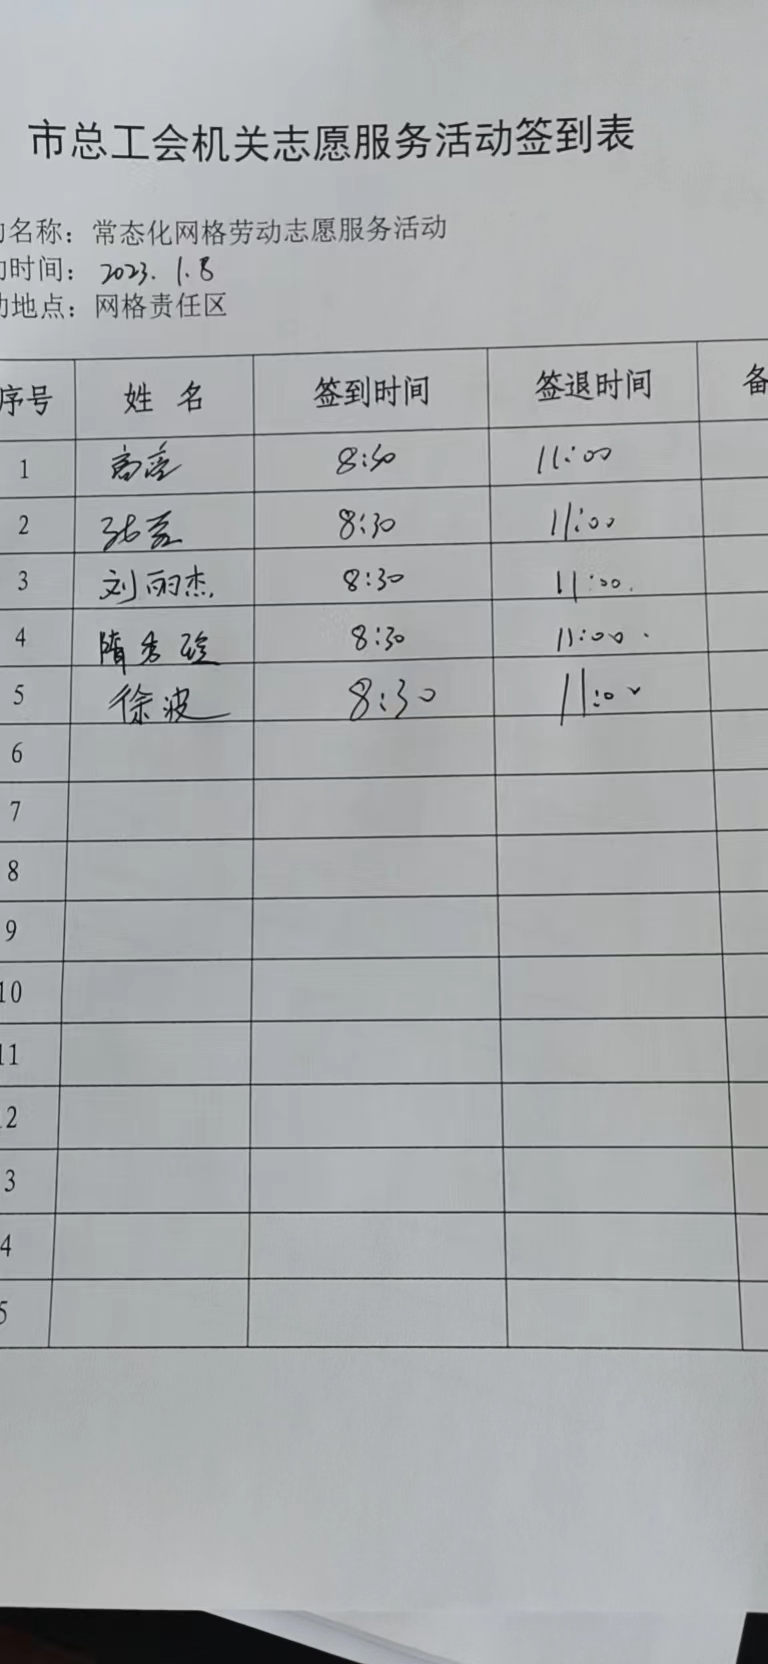 市总工会机关志愿服务活动签到表
动名称：常态化网格劳动志愿服务活动
动时间：2023.1.8
动地点：网格责任区
序号 姓名 签到时间 签退时间 备
1 高 8:30 11:00
2 张 8:30 11:00
3 刘丽杰 8:30 11:00
4 隋秀 8:30 11:00
5 徐波 8:30 11:00
6
7
8
9
10
11
12
3
4
5